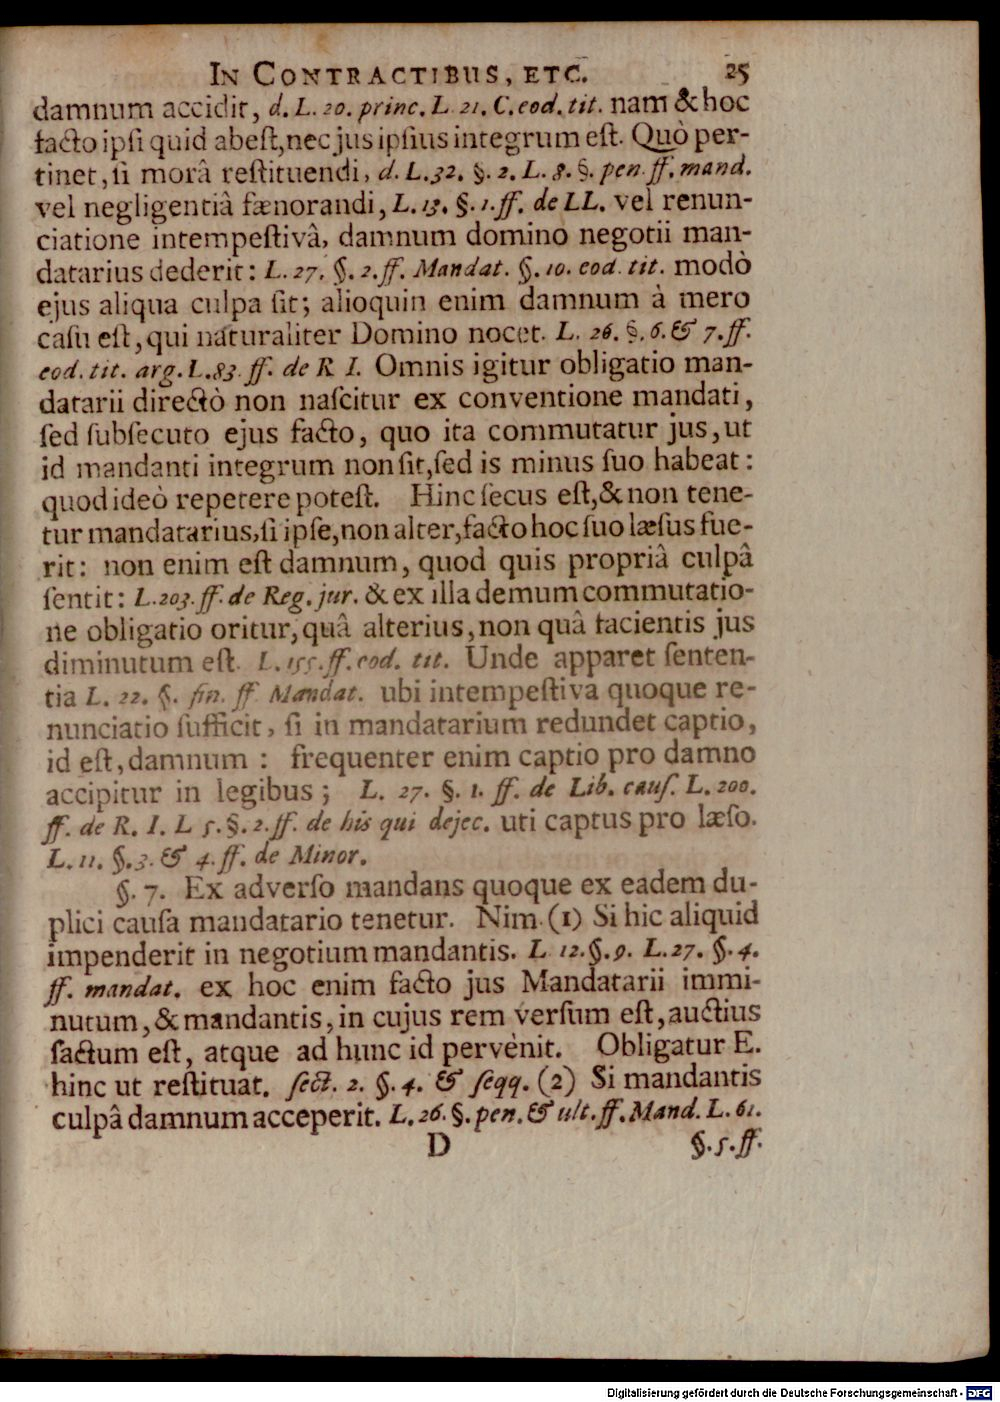 IN CONTRACTIBUS, ETC. 25
damnum accidit, d. L. 20. princ. L. 21. C. eod. tit. nam & hoc
facto ipſi quid abeſt, nec jus ipſius integrum eſt. Quò per-
tinet, ſi morâ reſtituendi, d. L. 32. §. 2. L. 8. §. pen. ff. mand.
vel negligentiâ fænorandi, L. 13. §. 1. ff. de LL. vel renun-
ciatione intempeſtivâ, damnum domino negotii man-
datarius dederit: L. 27. §. 2. ff. Mandat. §. 10. eod. tit. modò
ejus aliqua culpa ſit; alioquin enim damnum à mero
caſu eſt, qui naturaliter Domino nocet. L. 26. §. 6. & 7. ff.
eod. tit. arg. L. 83. ff. de R. I. Omnis igitur obligatio man-
datarii directò non naſcitur ex conventione mandati,
ſed ſubſecuto ejus facto, quo ita commutatur jus, ut
id mandanti integrum non ſit, ſed is minus ſuo habeat:
quod ideò repetere poteſt. Hinc ſecus eſt, & non tene-
tur mandatarius, ſi ipſe, non alter, facto hoc ſuo læſus fue-
rit: non enim eſt damnum, quod quis propriâ culpâ
ſentit: L. 203. ff. de Reg. jur. & ex illa demum commutatio-
ne obligatio oritur, quâ alterius, non quâ facientis jus
diminutum eſt. L. 155. ff. eod. tit. Unde apparet ſenten-
tia L. 22. §. fin. ff. Mandat. ubi intempeſtiva quoque re-
nunciatio ſufficit, ſi in mandatarium redundet captio,
id eſt, damnum : frequenter enim captio pro damno
accipitur in legibus; L. 27. §. 1. ff. de Lib. cauſ. L. 200.
ff. de R. I. L 5. §. 2. ff. de his qui dejec. uti captus pro læſo.
L. 11. §. 3. & 4. ff. de Minor.
§. 7. Ex adverſo mandans quoque ex eadem du-
plici cauſa mandatario tenetur. Nim. (1) Si hic aliquid
impenderit in negotium mandantis. L 12. §. 9. L. 27. §. 4.
ff. mandat. ex hoc enim facto jus Mandatarii immi-
nutum, & mandantis, in cujus rem verſum eſt, auctius
factum eſt, atque ad hunc id pervènit. Obligatur E.
hinc ut reſtituat. ſect. 2. §. 4. & ſeqq. (2) Si mandantis
culpâ damnum acceperit. L. 26. §. pen. & ult. ff. Mand. L. 61.
D §. 5. ff.
Digitalisierung gefördert durch die Deutsche Forschungsgemeinschaft - DFG